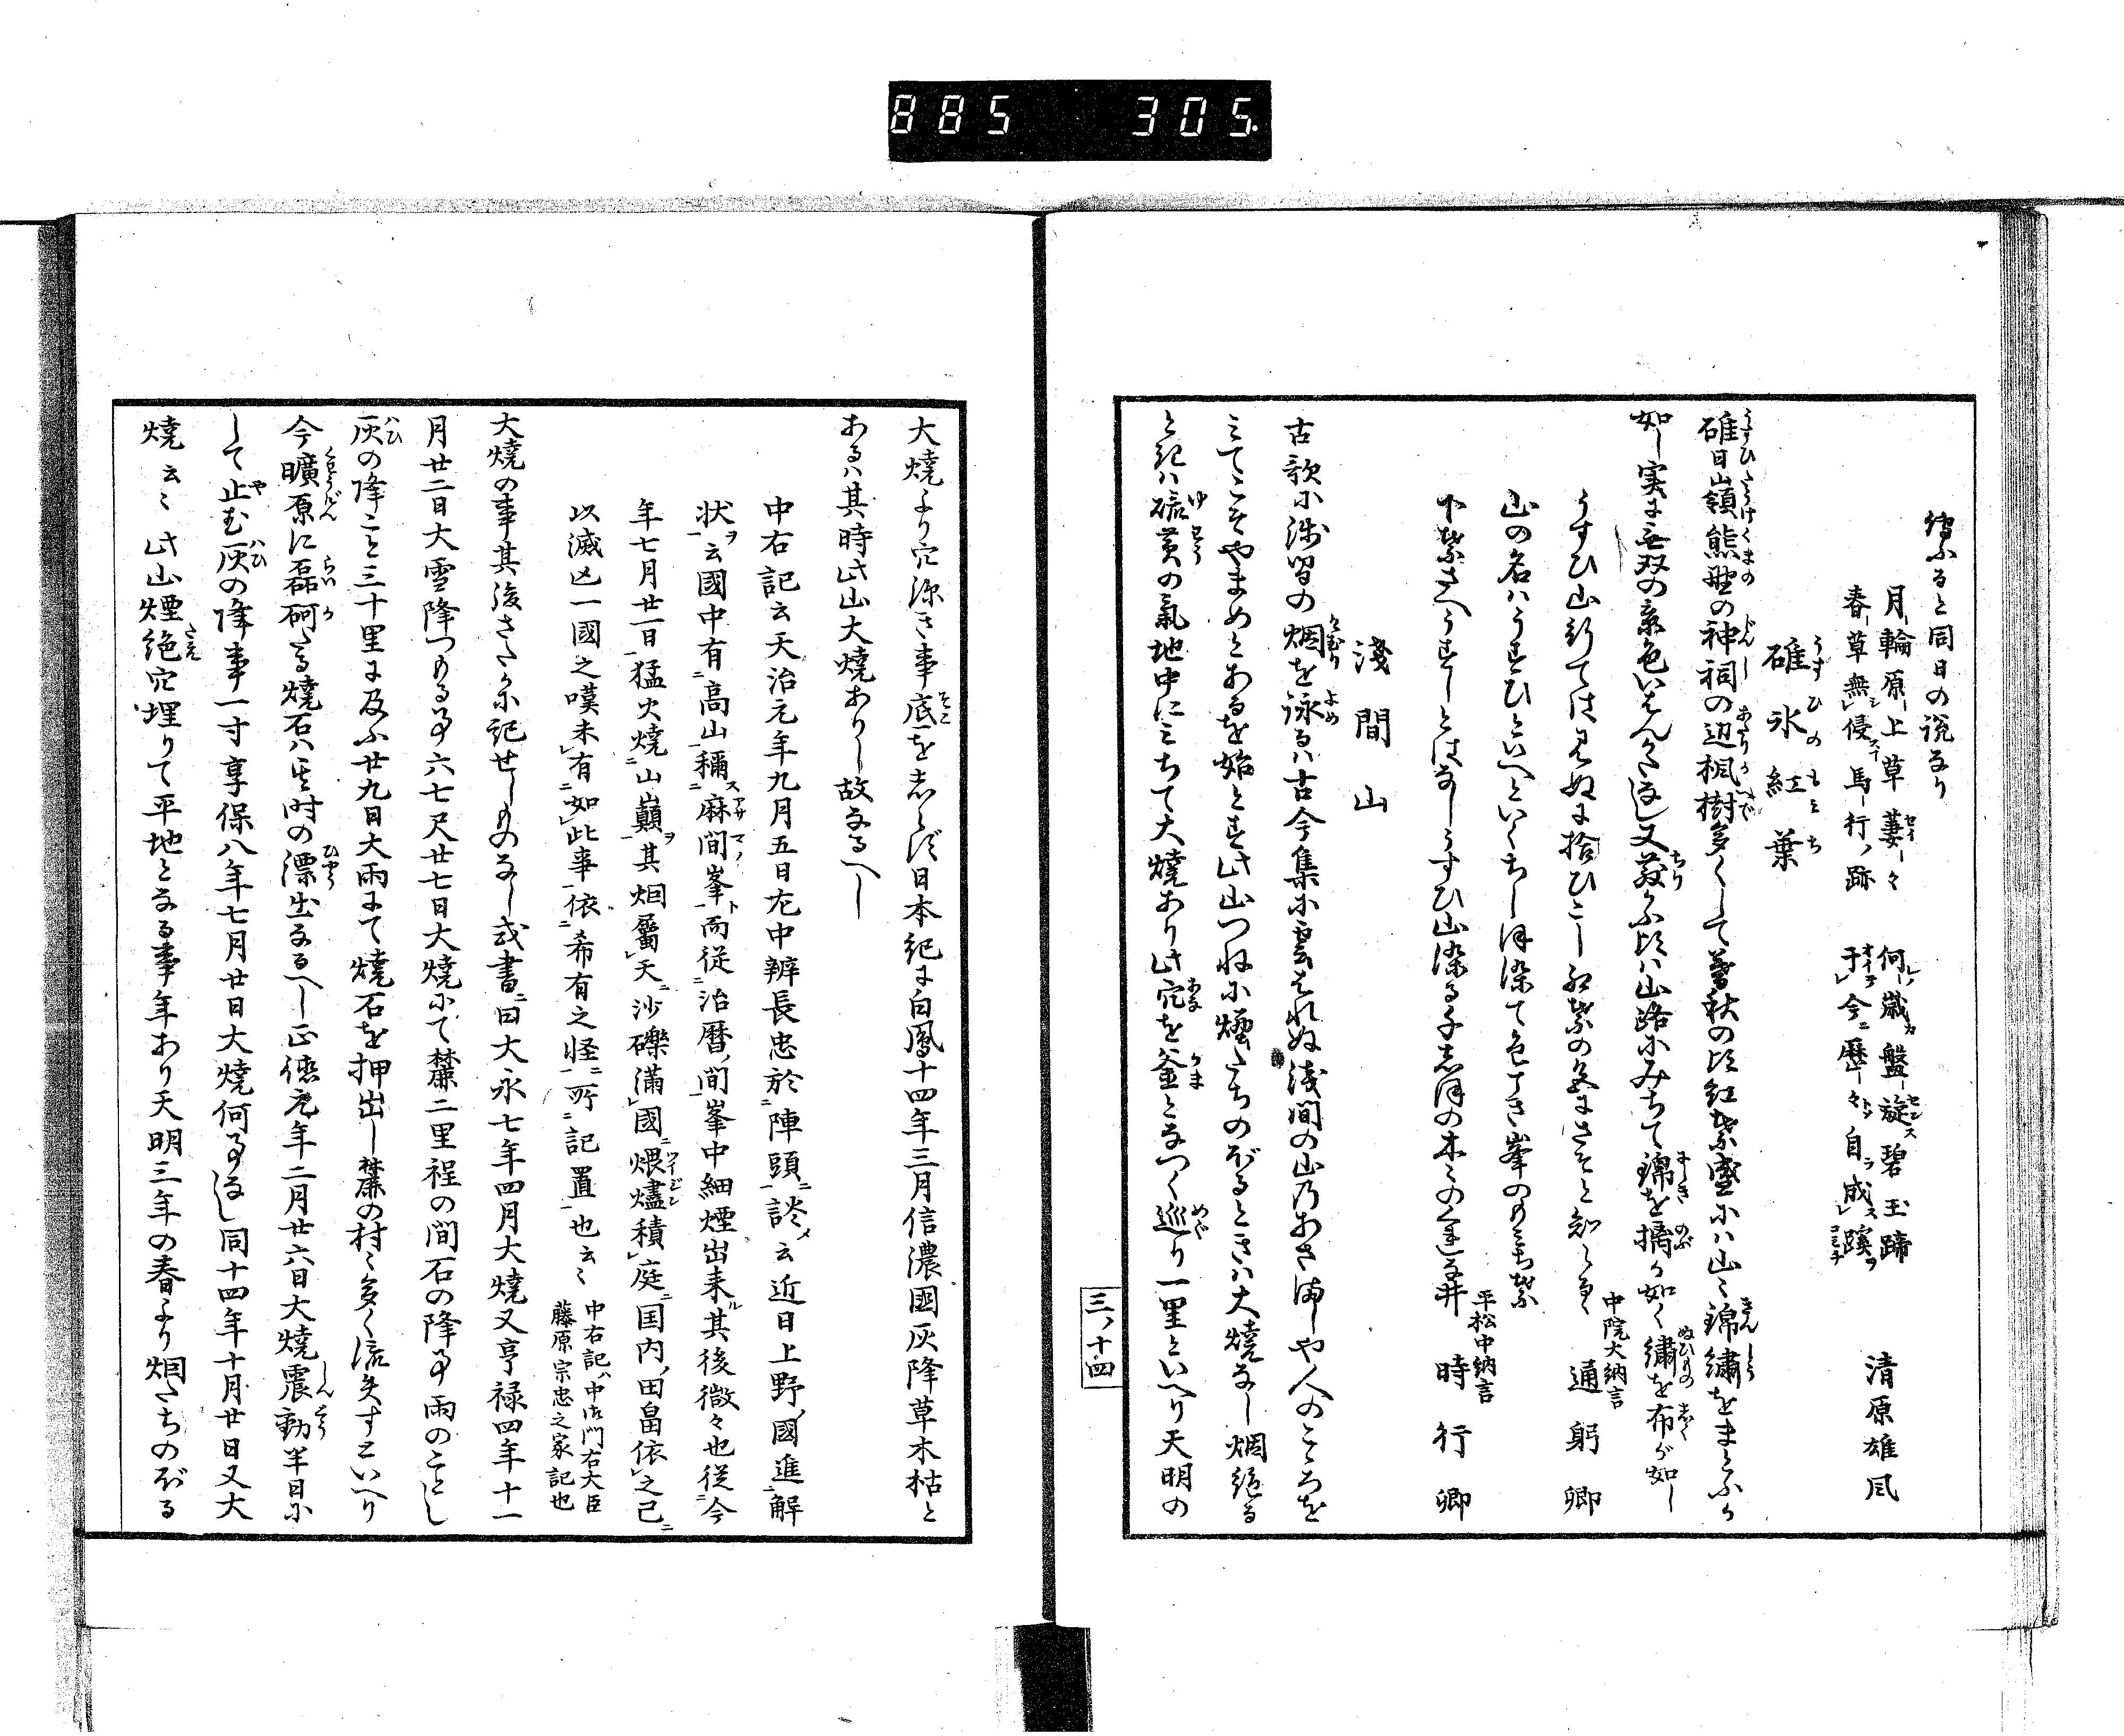 885 305.
傳ふると同日の説なり
月輪原上草萋々 何歳盤旋碧玉蹄
春草無侵馬行跡 于今歴々自成蹊
清原雄風
碓氷紅葉
碓日嶺熊野の神祠の辺楓樹多くして暮秋の比紅葉盛には山々錦繡をまとふか
如し実に無双の景色いはんかたなし又散かふ比は山路にみちて錦を摛か如く繡を布が如し
中院大納言
通躬卿
山の名はうすひといへといくちしほ染て色こき峯のもみち葉
平松中納言
下葉さへうすしとはなしうすひ山染る千しほの木々の
時行卿
淺間山
古歌に浅間の烟を詠るは古今集に雲はれぬ浅間の山乃あさましや人のこゝろを
みてこそやまめとあるを始とす此山つねに煙たちのぼるときは大燒なし烟絶る
と紀は硫黄の氣地中にみちて大燒あり此穴を釜となつく巡り一里といへり天明の
三ノ十四
大燒より穴深き事底をしらず日本紀に白鳳十四年三月信濃國灰降草木枯と
あるは其時此山大燒ありし故なるへし
中右記云天治元年九月五日左中辨長忠於陣頭談云近日上野國進解
状云國中有高山稱麻間峯而從治暦間峯中細煙出来其後微々也從今
年七月廿一日猛火燒山巓其烟屬天沙礫滿國煨燼積庭国内田畠依之已
以滅亡一國之嘆未有如此事依希有之怪所記置也云々
中右記ハ中御門右大臣
藤原宗忠之家記也
大燒の事其後さたかに記せしものなし或書曰大永七年四月大燒又亨禄四年十一
月廿二日大雪降つもる事六七尺廿七日大燒にて麓二里程の間石の降事雨のことし
灰の降こと三十里に及ふ廿九日大雨にて燒石を押出し麓の村々多く流失すといへり
今曠原に磊砢たる燒石は其時の漂出なるへし正德元年二月廿六日大燒震動半日に
して止む灰の降事一寸享保八年七月廿日大燒何事なし同十四年十月廿日又大
燒云々此山煙絶穴埋りて平地となる事年あり天明三年の春より烟たちのぼる